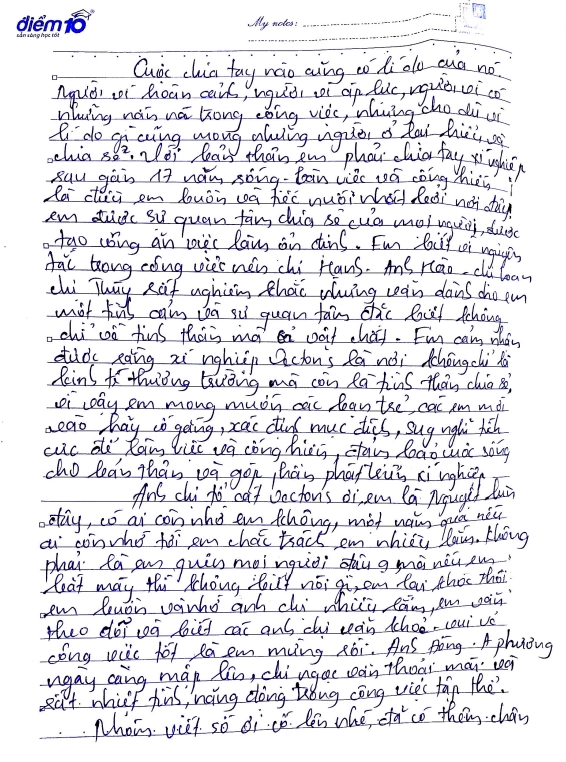 điểm10
sẵn sàng học tốt
My notes:
Cuộc chia tay nào cũng có lí do của nó
Người vì hoàn cảnh, người vì áp lực, người vì có
những nán ná trong công việc, nhưng cho dù vì
lí do gì cũng mong những người ở lại hiểu và
chia sẻ. Với bản thân em phải chia tay xí nghiệp
sau gần 17 năm sống - làm việc và cống hiến
là điều em buồn và tiếc nuối nhất bởi nơi đây
em được sự quan tâm chia sẻ của mọi người, được
tạo công ăn việc làm ổn định. Em biết vì nguyên
tắc trong công việc nên chị Hạnh. Anh Hào - chị Loan
chị Thủy rất nghiêm khắc nhưng vẫn dành cho em
một tình cảm và sự quan tâm đặc biệt không
chỉ về tinh thần mà cả vật chất. Em cảm nhận
được rằng xí nghiệp Doctons là nơi không chỉ là
kinh tế thương trường mà còn là tinh thần chia sẻ,
vì vậy em mong muốn các bạn trẻ, các em mới
vào hãy cố gắng, xác định mục đích, suy nghĩ tích
cực để làm việc và cống hiến, đảm bảo cuộc sống
cho bản thân và góp phần phát triển xí nghiệp.
Anh chị tổ cắt Doctons ơi, em là Nguyệt lùn
đây, có ai còn nhớ em không, một năm qua nếu
ai còn nhớ tới em chắc trách em nhiều lắm. Không
phải là em quên mọi người đâu ạ mà nếu em
bắt máy thì không biết nói gì, em lại khóc thôi
em buồn và nhớ anh chị nhiều lắm, em vẫn
theo dõi và biết các anh chị vẫn khoẻ - vui vẻ
công việc tốt là em mừng rồi. Anh Đông. A phương
ngày càng mập lên, chị ngọc vẫn thoải mái và
rất nhiệt tình, năng động trong công việc tập thể.
Nhóm viết số ơi cố lên nhé, đã có thêm chân